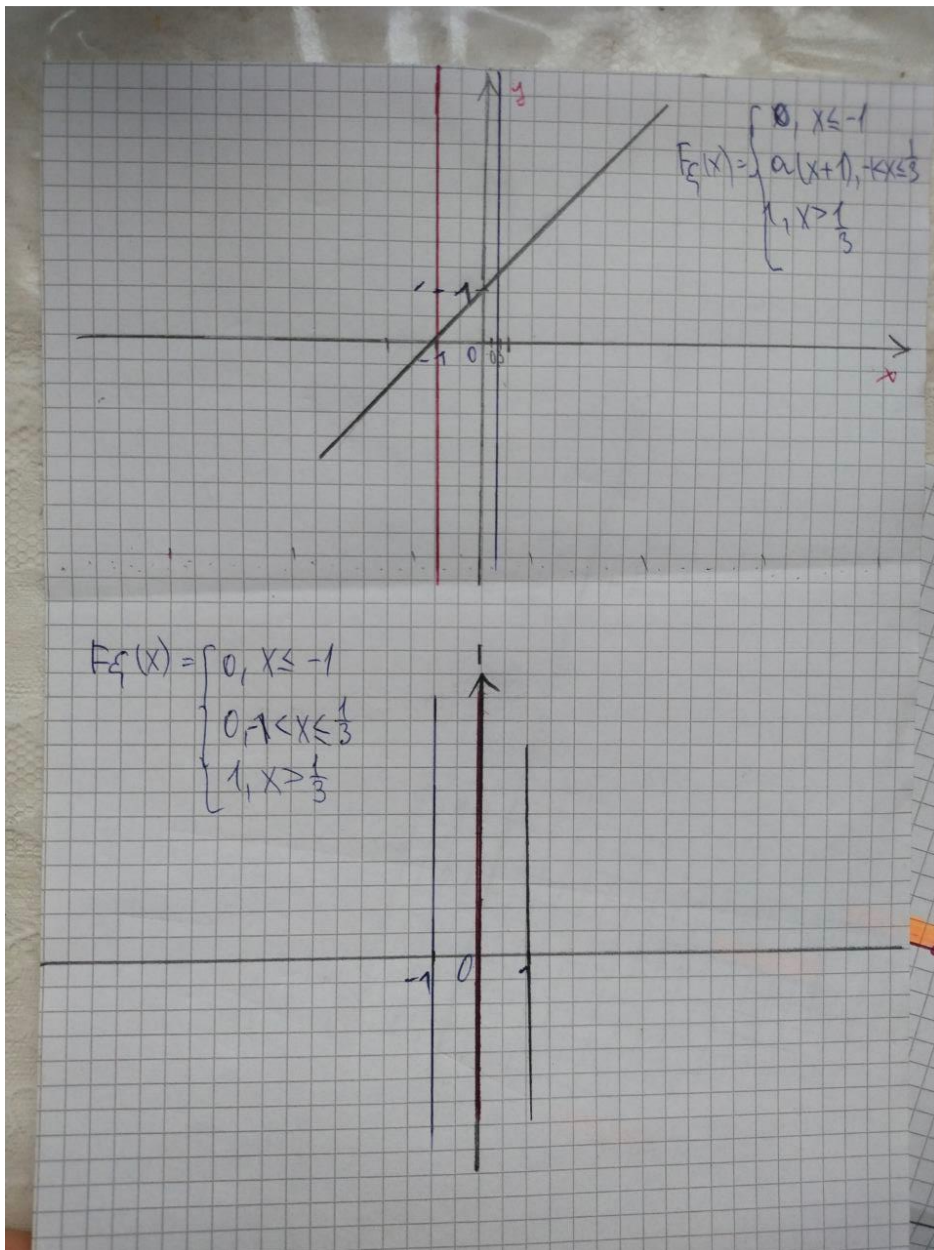 y
0, x ≤ -1
Fξ(x) = { a(x+1), -1<x≤1/3
1, x > 1/3
1
-1 0
x
Fξ(x) = { 0, x ≤ -1
0, -1 < x ≤ 1/3
1, x > 1/3
-1 0 1